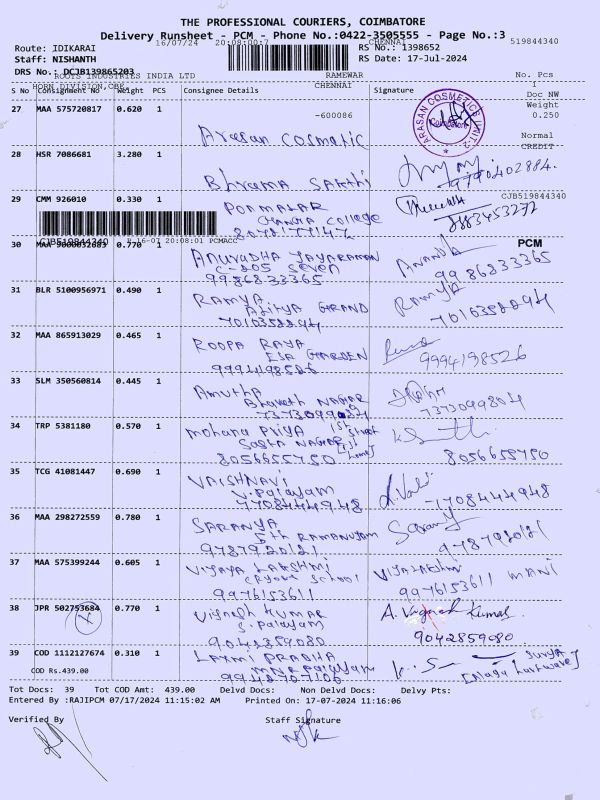 THE PROFESSIONAL COURIERS, COIMBATORE
Delivery Runsheet - PCM - Phone No.:0422-3505555 - Page No.:3
16/07/24 20:08:00:7 CHENNAI 519844340
Route: IDIKARAI RS No.: 1398652
Staff: NISHANTH RS Date: 17-Jul-2024
DRS No.: DCJB139865203
ROOTS INDUSTRIES INDIA LTD RAMEWAR No. Pcs
HORN DIVISION,CBE CHENNAI 1
S No Consignment No Weight PCS Consignee Details Signature Doc NW
Weight
27 MAA 575720817 0.620 1 -600086 0.250
ARASAN COSMETICS UNIT-2
Arasan Cosmatic Normal
CREDIT
28 HSR 7086681 3.280 1
Bhrama Sakthi 9790402884
29 CMM 926010 0.330 1 CJB519844340
PONMALAR
College
CJB519844340 R 16-07 20:08:01 PCMACC PCM
30 MAA 0.770 1 ANURADHA JAYARAMAN
C-205 SEVEN
9986833365 9986833365
31 BLR 5100956971 0.490 1 RAMYA RAMYA
ADITYA GRAND
7010358894 7010358894
32 MAA 865913029 0.465 1 ROOPA RAYA
ESA GARDEN
9994198526 9994198526
33 SLM 350560814 0.445 1 Amutha
Bharath NAGAR
7373099804
34 TRP 5381180 0.570 1 Mohana Priya 1st Street
Sastha NAGAR
8056655750 8056655750
35 TCG 41081447 0.690 1 VAISHNAVI
V.Palayam
7708444948 7708444948
36 MAA 298272559 0.780 1 SARANYA Saranya
5th RAMANUJAM
9787920121 9787920121
37 MAA 575399244 0.605 1 VIJAYA LAKSHMI VIJAYALAKSHMI MANI
School
9976153611 9976153611
38 JPR 502753684 0.770 1 Vignesh KUMAR A. Vignesh Kumar
S.Palayam
9042859080 9042859080
39 COD 1112127674 0.310 1 LAXMI PRABHA SURYA
COD Rs.439.00 Palayam
9948707106
Tot Docs: 39 Tot COD Amt: 439.00 Delvd Docs: Non Delvd Docs: Delvy Pts:
Entered By :RAJIPCM 07/17/2024 11:15:02 AM Printed On: 17-07-2024 11:16:06
Verified By Staff Signature